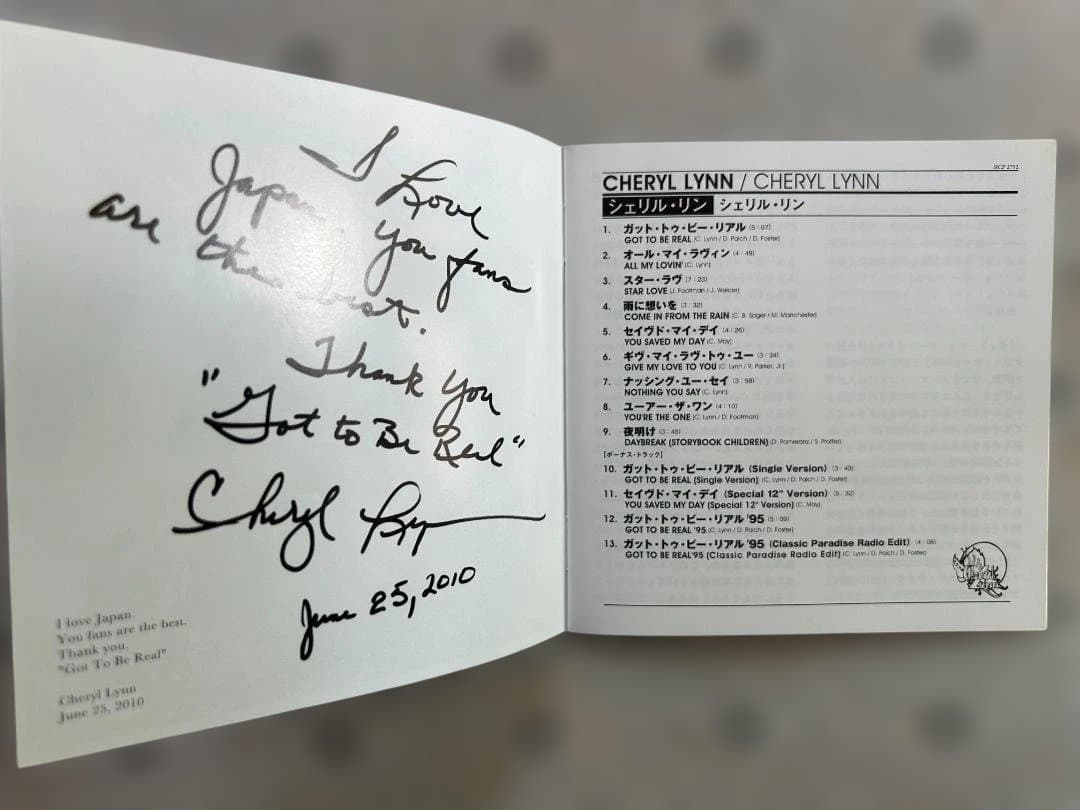 I Love
Japan. You fans
are the best.
Thank You
"Got to Be Real"
Cheryl Lynn
June 25, 2010
I love Japan.
You fans are the best.
Thank you.
"Got To Be Real"
Cheryl Lynn
June 25, 2010
SICP 2752
CHERYL LYNN / CHERYL LYNN
シェリル・リン シェリル・リン
1. ガット・トゥ・ビー・リアル (5:07)
GOT TO BE REAL (C. Lynn / D. Paich / D. Foster)
2. オール・マイ・ラヴィン (4:49)
ALL MY LOVIN' (C. Lynn)
3. スター・ラヴ (7:23)
STAR LOVE (J. Footman / J. Weider)
4. 雨に想いを (3:32)
COME IN FROM THE RAIN (C. B. Sager / M. Manchester)
5. セイヴド・マイ・デイ (4:26)
YOU SAVED MY DAY (C. May)
6. ギヴ・マイ・ラヴ・トゥ・ユー (3:34)
GIVE MY LOVE TO YOU (C. Lynn / R. Parker, Jr.)
7. ナッシング・ユー・セイ (3:58)
NOTHING YOU SAY (C. Lynn)
8. ユーアー・ザ・ワン (4:10)
YOU'RE THE ONE (C. Lynn / D. Footman)
9. 夜明け (3:45)
DAYBREAK (STORYBOOK CHILDREN) (D. Pomeranz / S. Proffer)
[ボーナス・トラック]
10. ガット・トゥ・ビー・リアル (Single Version) (3:43)
GOT TO BE REAL (Single Version) (C. Lynn / D. Paich / D. Foster)
11. セイヴド・マイ・デイ (Special 12" Version) (5:32)
YOU SAVED MY DAY (Special 12" Version) (C. May)
12. ガット・トゥ・ビー・リアル '95 (5:09)
GOT TO BE REAL '95 (C. Lynn / D. Paich / D. Foster)
13. ガット・トゥ・ビー・リアル '95 (Classic Paradise Radio Edit) (4:08)
GOT TO BE REAL'95 (Classic Paradise Radio Edit) (C. Lynn / D. Paich / D. Foster)